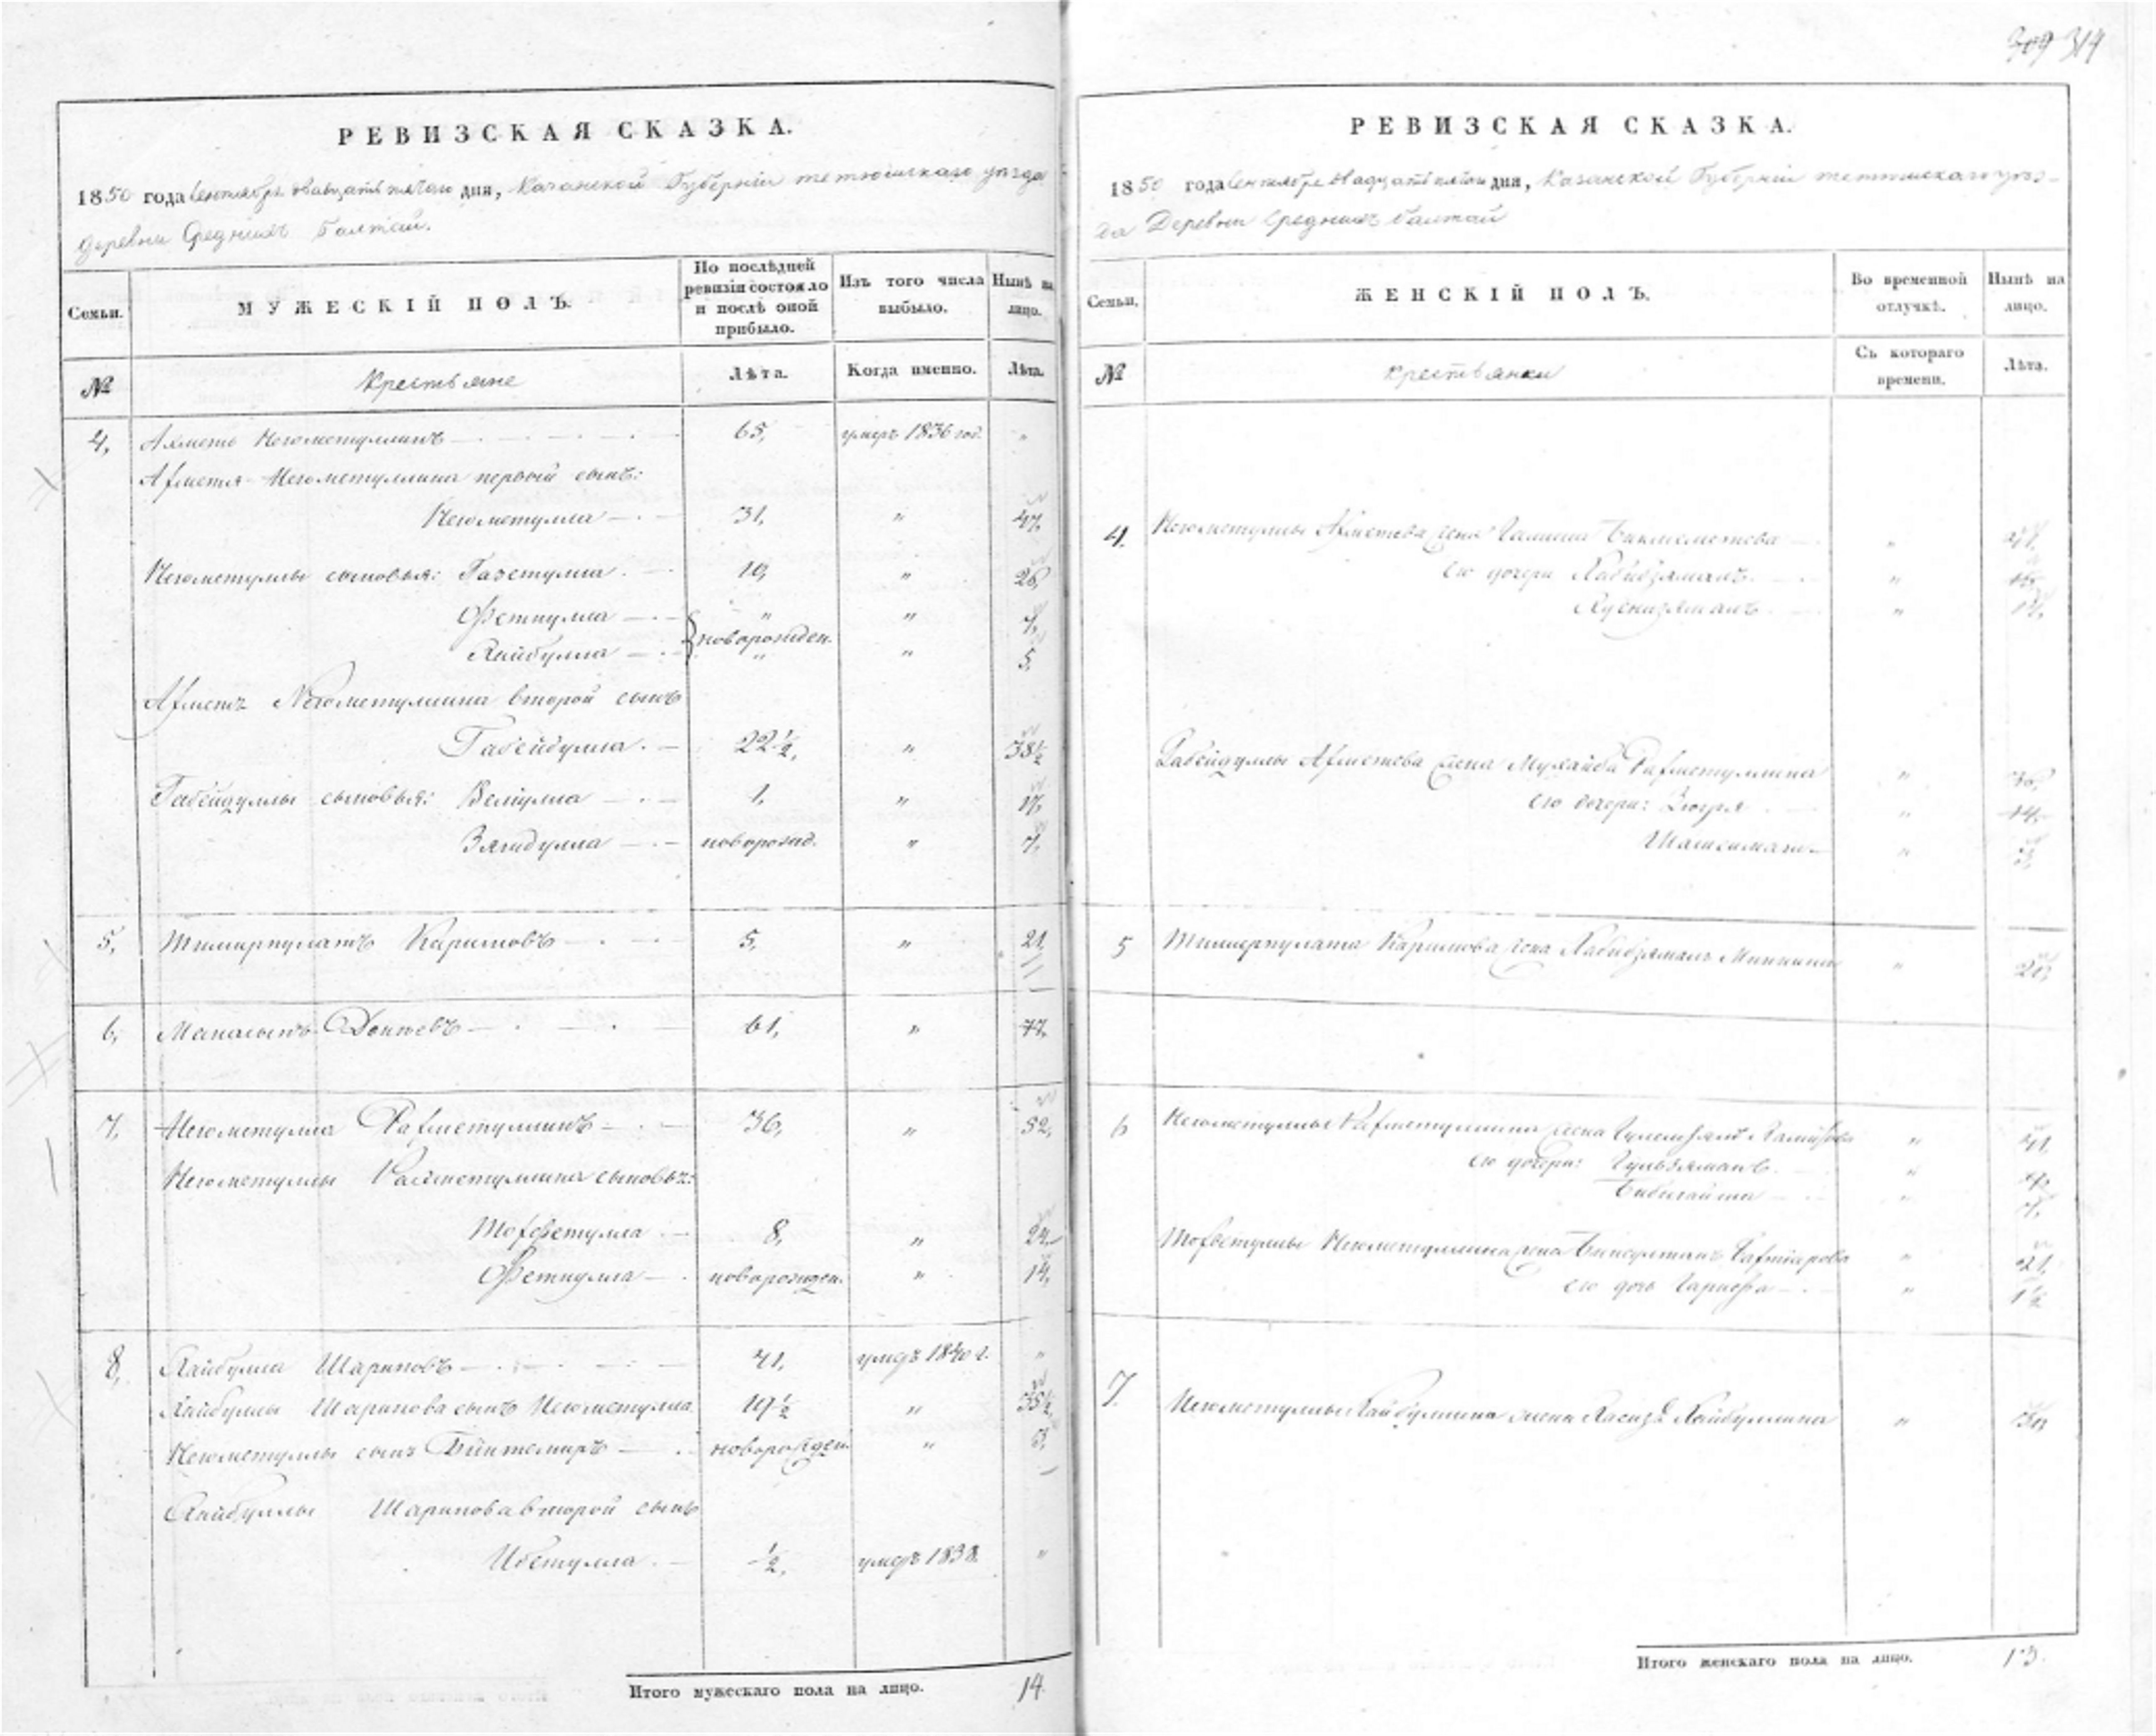 309 314
РЕВИЗСКАЯ СКАЗКА.
1850 года Сентября двадцать пятаго дня, Казанской Губерніи тетюшскаго уезда
Деревни Средних Балтай.
Семьи.
МУЖЕСКІЙ ПОЛЪ.
По послѣдней ревизіи состояло и послѣ оной прибыло.
Изъ того числа выбыло.
Нынѣ на лицо.
№
Крестьяне
Лѣта.
Когда именно.
Лѣта.
4, Ахметъ Негометуллинъ 65, умеръ 1836 год. "
Ахметя Негометуллина первый сынъ:
Негометулла 31, " 47,
Негометуллы сыновья: Газетулла 10, " 26,
Фетхулла " " 7,
новорожден.
Хайбулла " " 5.
Ахметя Негометуллина второй сынъ
Габейдулла 22½, " 38½
Габейдуллы сыновья: Велиулла 1, " 17,
Зяйдулла новорожд. " 7,
5, Тимирпулатъ Каримовъ 5, " 21,
6, 61, " 77,
7, Негометулла Рахметуллинъ 36, " 52,
Негометуллы Рахметуллина сыновья:
Тохфетулла 8, " 24,
Фетхулла новорожден. " 14,
8, Хайбулла Шариповъ 41, умеръ 1840 г. "
Хайбуллы Шарипова сынъ Негометулла 19½ " 35½
Негометуллы сынъ Биктемиръ новорожден. " 3,
Хайбуллы Шарипова второй сынъ
Ибетулла ½, умеръ 1838. "
Итого мужескаго пола на лицо. 14
РЕВИЗСКАЯ СКАЗКА.
1850 года Сентября двадцать пятаго дня, Казанской Губерніи тетюшскаго уез-
да Деревни Средних Балтай
Семьи.
ЖЕНСКІЙ ПОЛЪ.
Во временной отлучкѣ.
Нынѣ на лицо.
№
Крестьянки
Съ котораго времени.
Лѣта.
4. Негометуллы Ахметева жена Бикмеметева "
его дочери Хабибзямалъ "
Хуснизямалъ "
Габейдуллы Ахметева жена Рахметуллина "
его дочери: Зюгря " 14,
"
5 Тимерпулата Каримова жена Хабибзямалъ "
6 Негометуллы Рахметуллина жена " 41,
его дочери: Гульзямалъ "
Бибигайша " 7,
Тохфетуллы Негометуллина жена " 21,
его дочь " 1½
7. Негометуллы Хайбуллина жена Хайбуллина " 30,
Итого женскаго пола на лицо. 13.